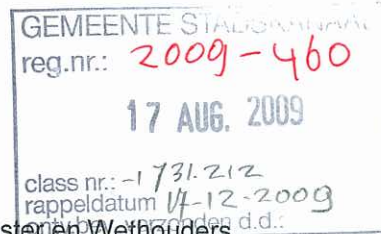 GEMEENTE STADSKANAAL
reg.nr.: 2009-460
17 AUG. 2009
class nr.: -1731.212
rappeldatum 17-12-2009
ontv.bev. verzonden d.d.:
ster en Wethouders